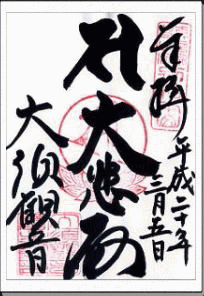 奉拝
平成二十年
三月五日
大悲殿
大須観音